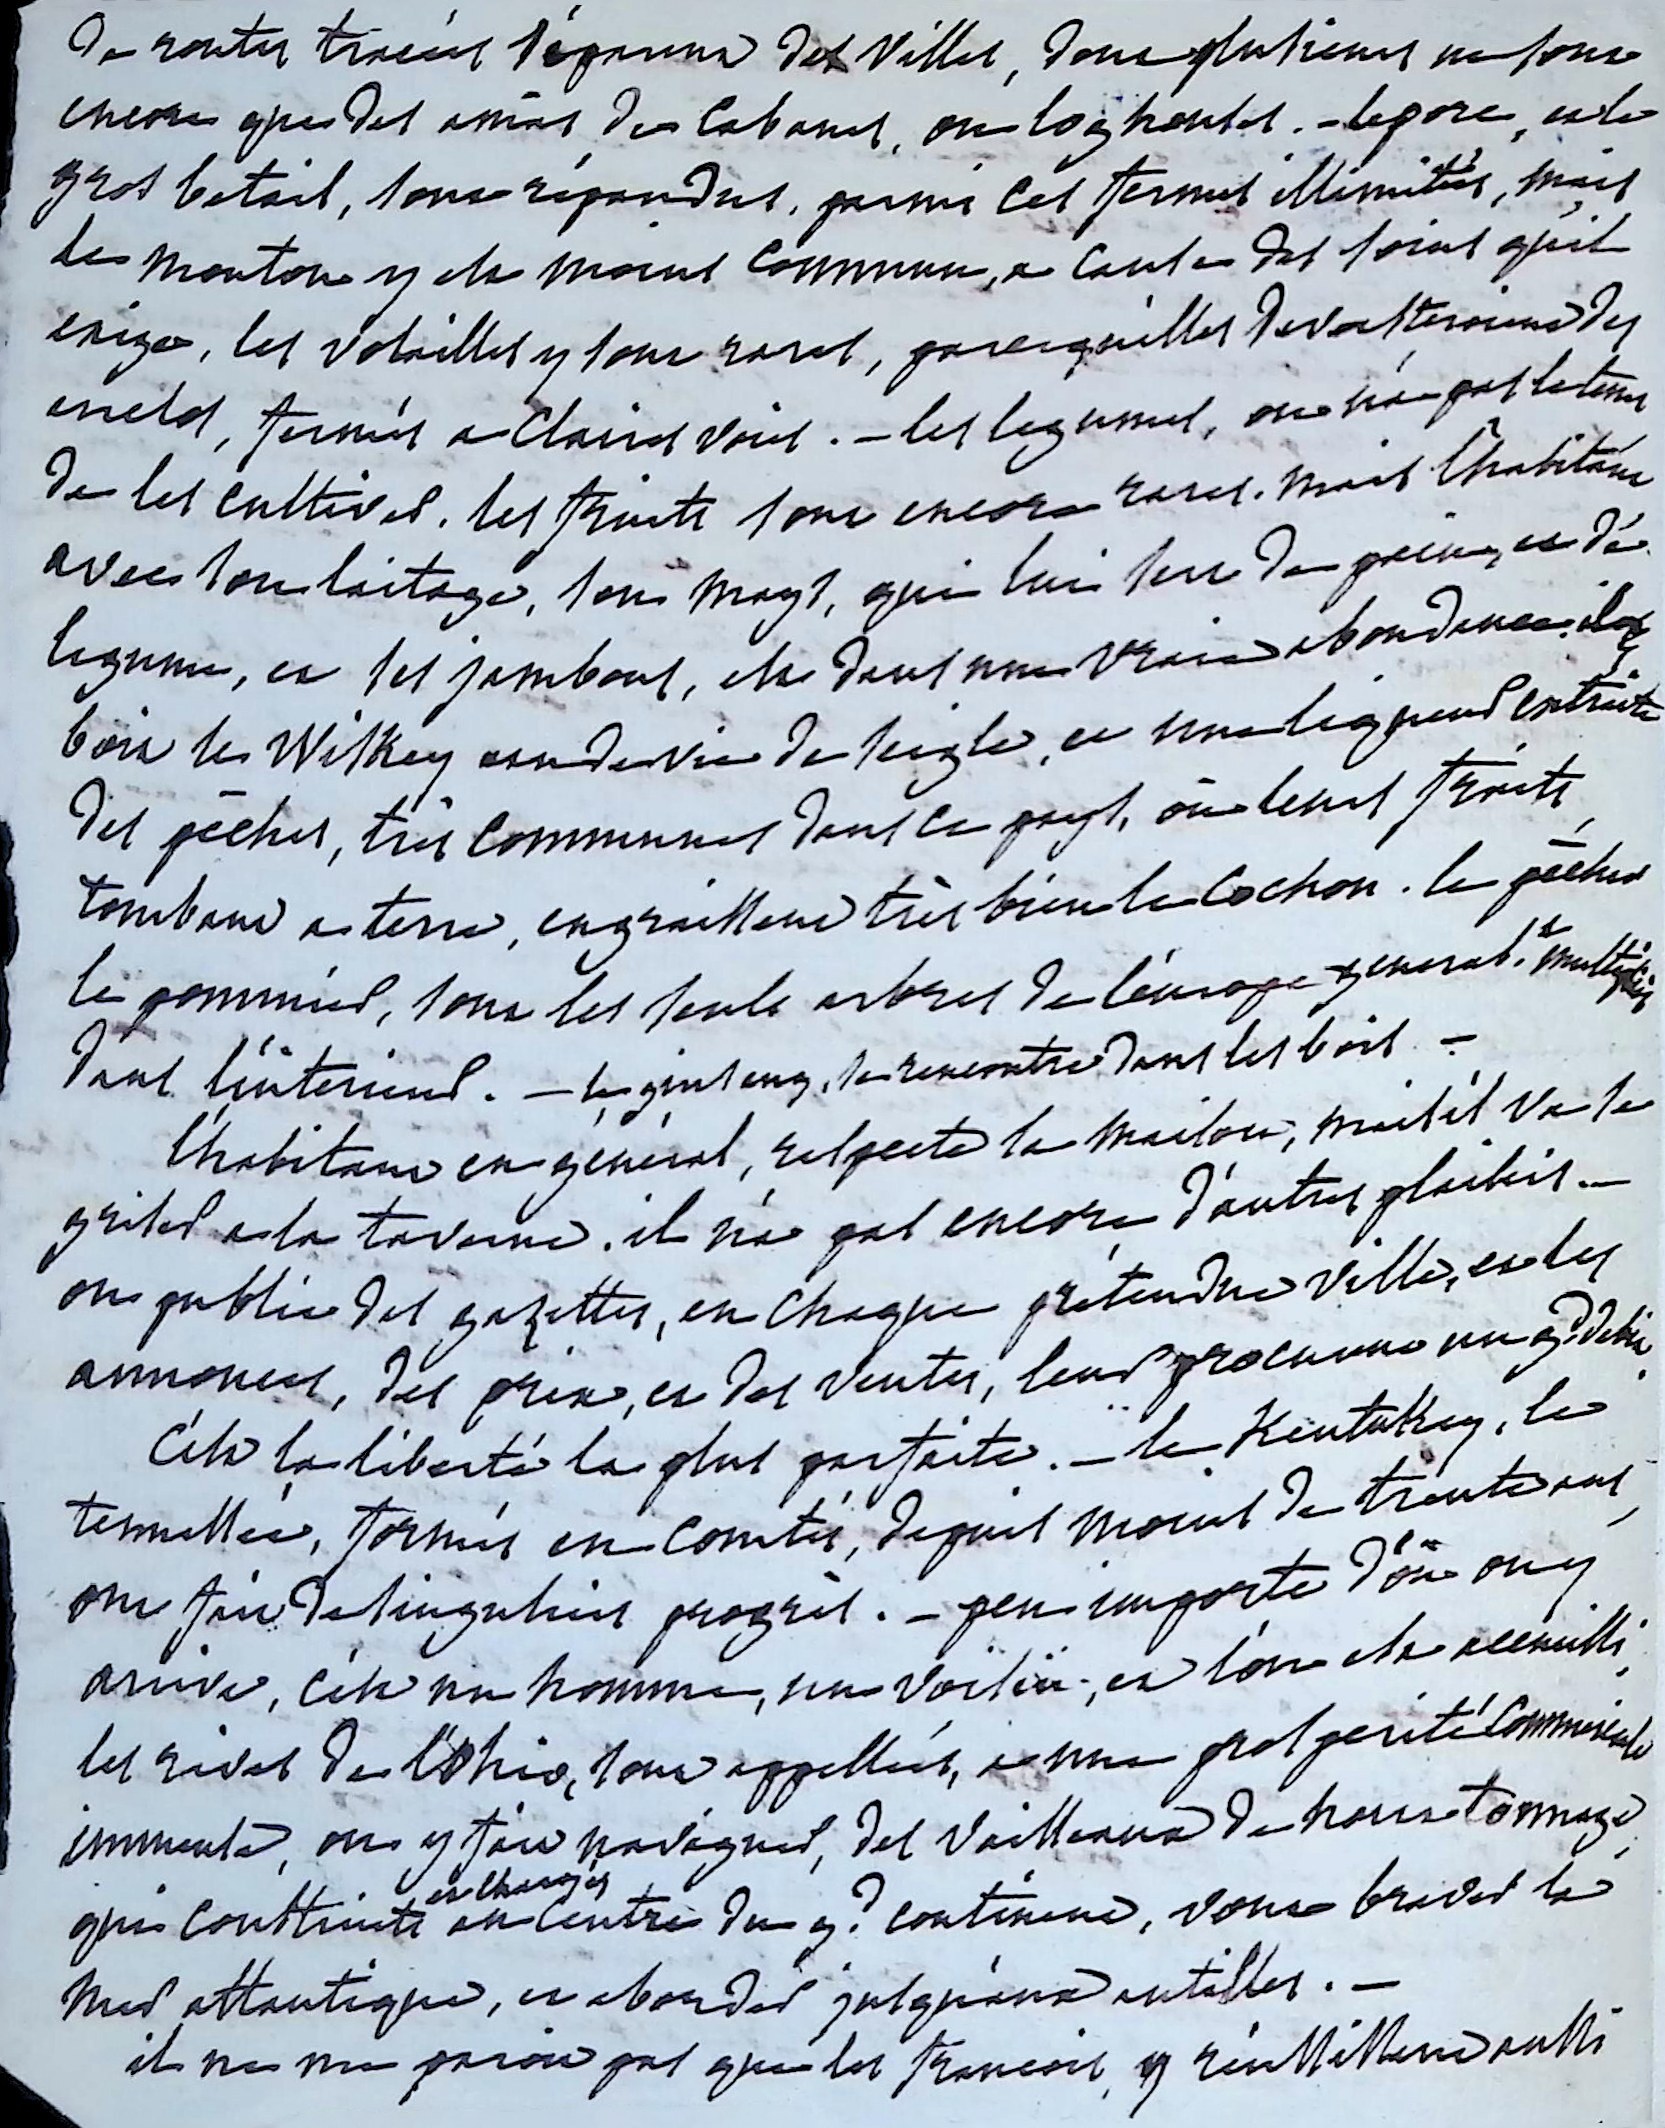 de routes tracées séparent des villes, dont plusieurs ne sont
encore que des amas de Cabanes, ou loghouses. - le porc, et le
gros betail, sont répandus, parmi ces fermes illimitées, mais
le mouton y est moins commun, a cause des soins qu'il
exige, les volailles y sont rares, parcequ'elles devasteroient des
enclos, fermés a Claires voies. - les legumes, on n'a pas le tems
de les cultiver. les fruits sont encore rares. mais l'habitant
avec son laitage, son mays, qui lui sert de pain, et de
legume, et ses jambons, est dans une vraie abondance. il
boit le Wiskey eau de vie de seigle, et une liqueur extraite
des pêches, très communes dans ce pays, où leurs fruits,
tombant a terre, engraissent très bien le Cochon. le pêcher
le pommier, sont les seuls arbres de l'europe general.t multipliés
dans l'intérieur. - le ginseng, se rencontre dans les bois -
l'habitant en général, respecte sa maison, mais il va se
griser a la taverne. il n'a pas encore d'autres plaisirs. -
on publie des gazettes, en chaque prétendue ville, et les
annonces, des prix, et des ventes, leur procurent un g.d debit.
C'est la liberté la plus parfaite. - le Kentukey, le
tennessée, formés en Comtés, depuis moins de trente ans,
ont fait de singuliers progrès. - peu importe d'où on y
arrive, c'est un homme, un voisin, et l'on est accueilli,
les rives de l'Ohio, sont appellées, a une prosperité Commerciale
immense, on y fait naviguer, des vaisseaux de haut tonnage,
qui construits et chargés au Centre du g.d continent, vont braver la
Mer atlantique, et aborder jusqu'aux antilles. -
il ne me paroit pas que les françois, y réussissent aussi